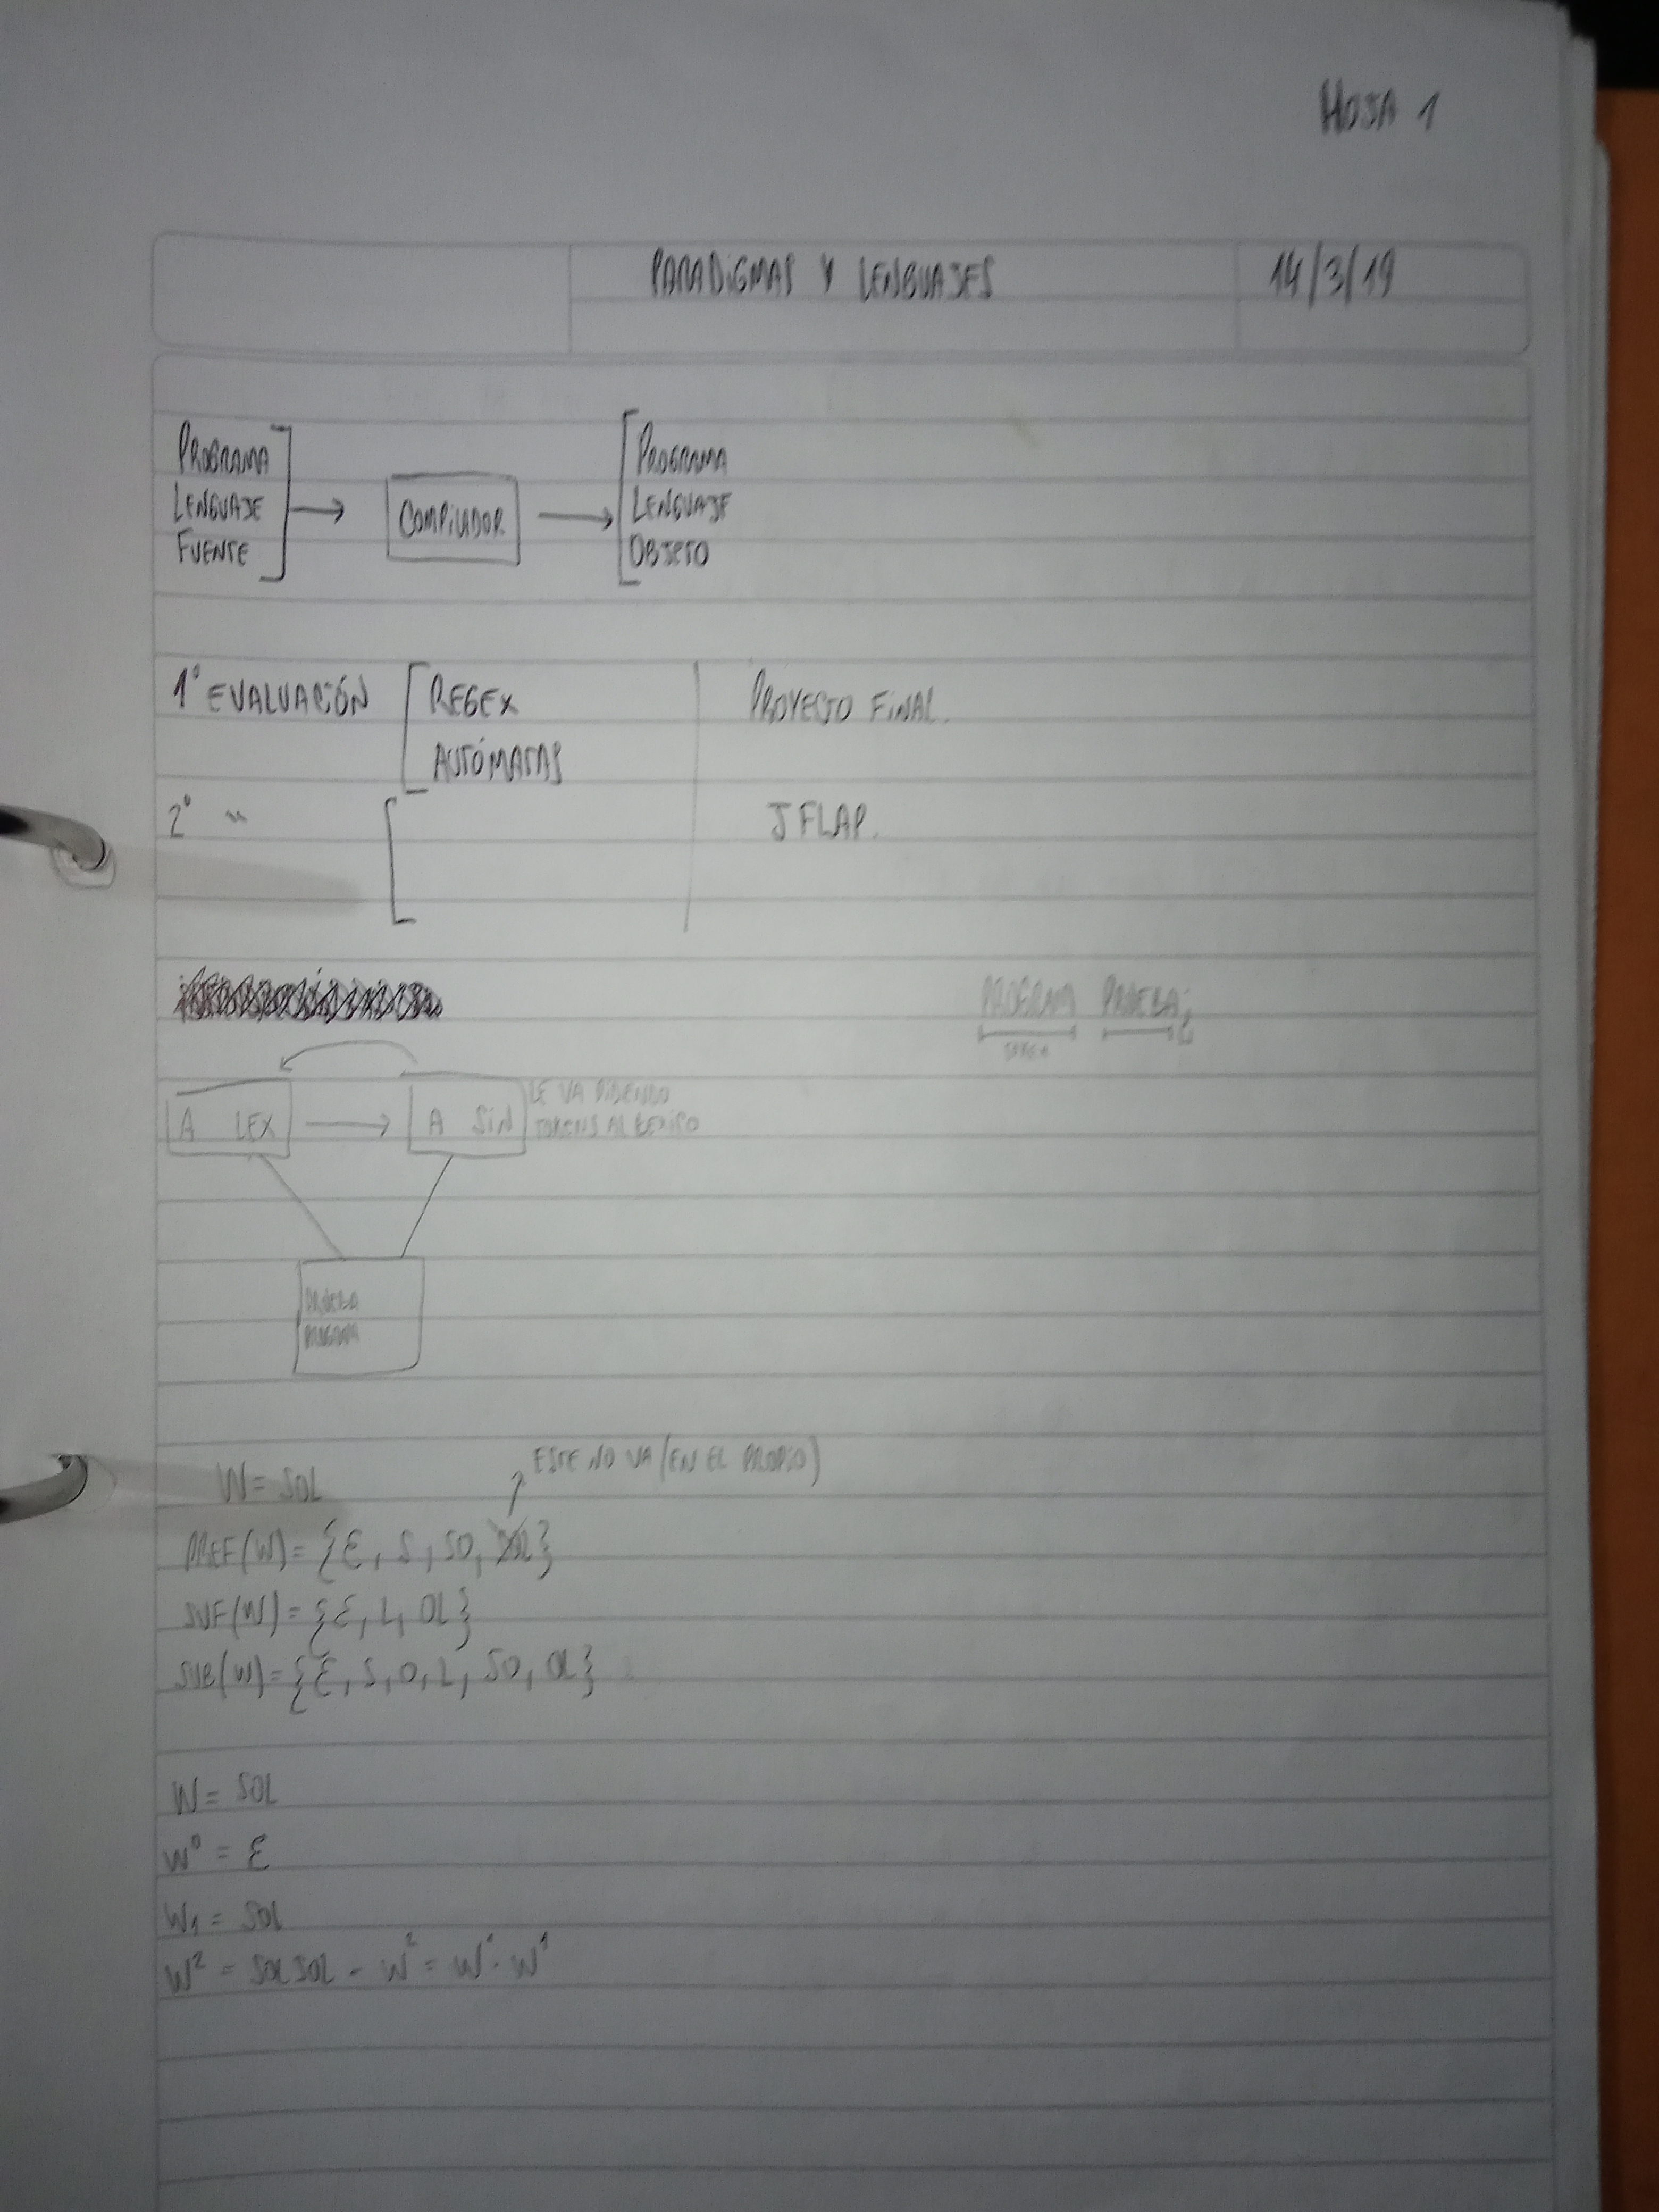 HOJA 1
PARADIGMAS Y LENGUAJES 14/3/19
PROGRAMA
LENGUAJE
FUENTE
COMPILADOR
PROGRAMA
LENGUAJE
OBJETO
1° EVALUACIÓN REGEX PROYECTO FINAL.
AUTÓMATAS
2° " JFLAP.
PROGRAM PRUEBA;
TOKEN
A LEX → A SIN
LE VA PIDIENDO
TOKENS AL LEXICO
PRUEBA
PROGRAM
ESTE NO VA (EN EL PROPIO)
W = SOL
PREF(W) = {ε, S, SO, SOL}
SUF(W) = {ε, L, OL}
SUB(W) = {ε, S, O, L, SO, OL}
W = SOL
W⁰ = ε
W₁ = SOL
W² = SOLSOL - W² = W¹ · W¹